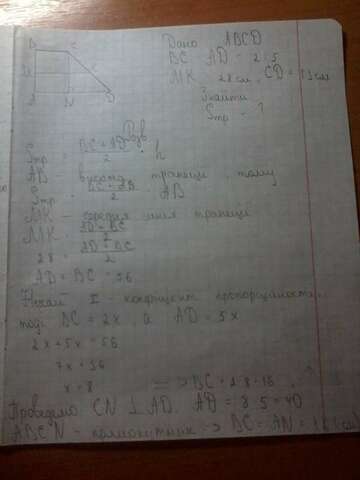 Дано ABCD
BC : AD = 2 : 5
MK = 28 см, CD = см
Знайти
Sтр - ?
Розв
Sтр = (BC + AD)/2 · h
AB - висота трапеції, тому
Sтр = / 2 · AB
MK - середня лінія трапеції
MK = (AD + BC)/2
28 = (AD + BC)/2
AD + BC = 56
Нехай - коефіцієнт пропорційності,
тоді BC = 2x, а AD = 5x
2x + 5x = 56
7x = 56
x = 8 => BC = 2·8 = 16
Проведемо CN ⊥ AD. AD = 8·5 = 40
ABCN - => BC = AN = см